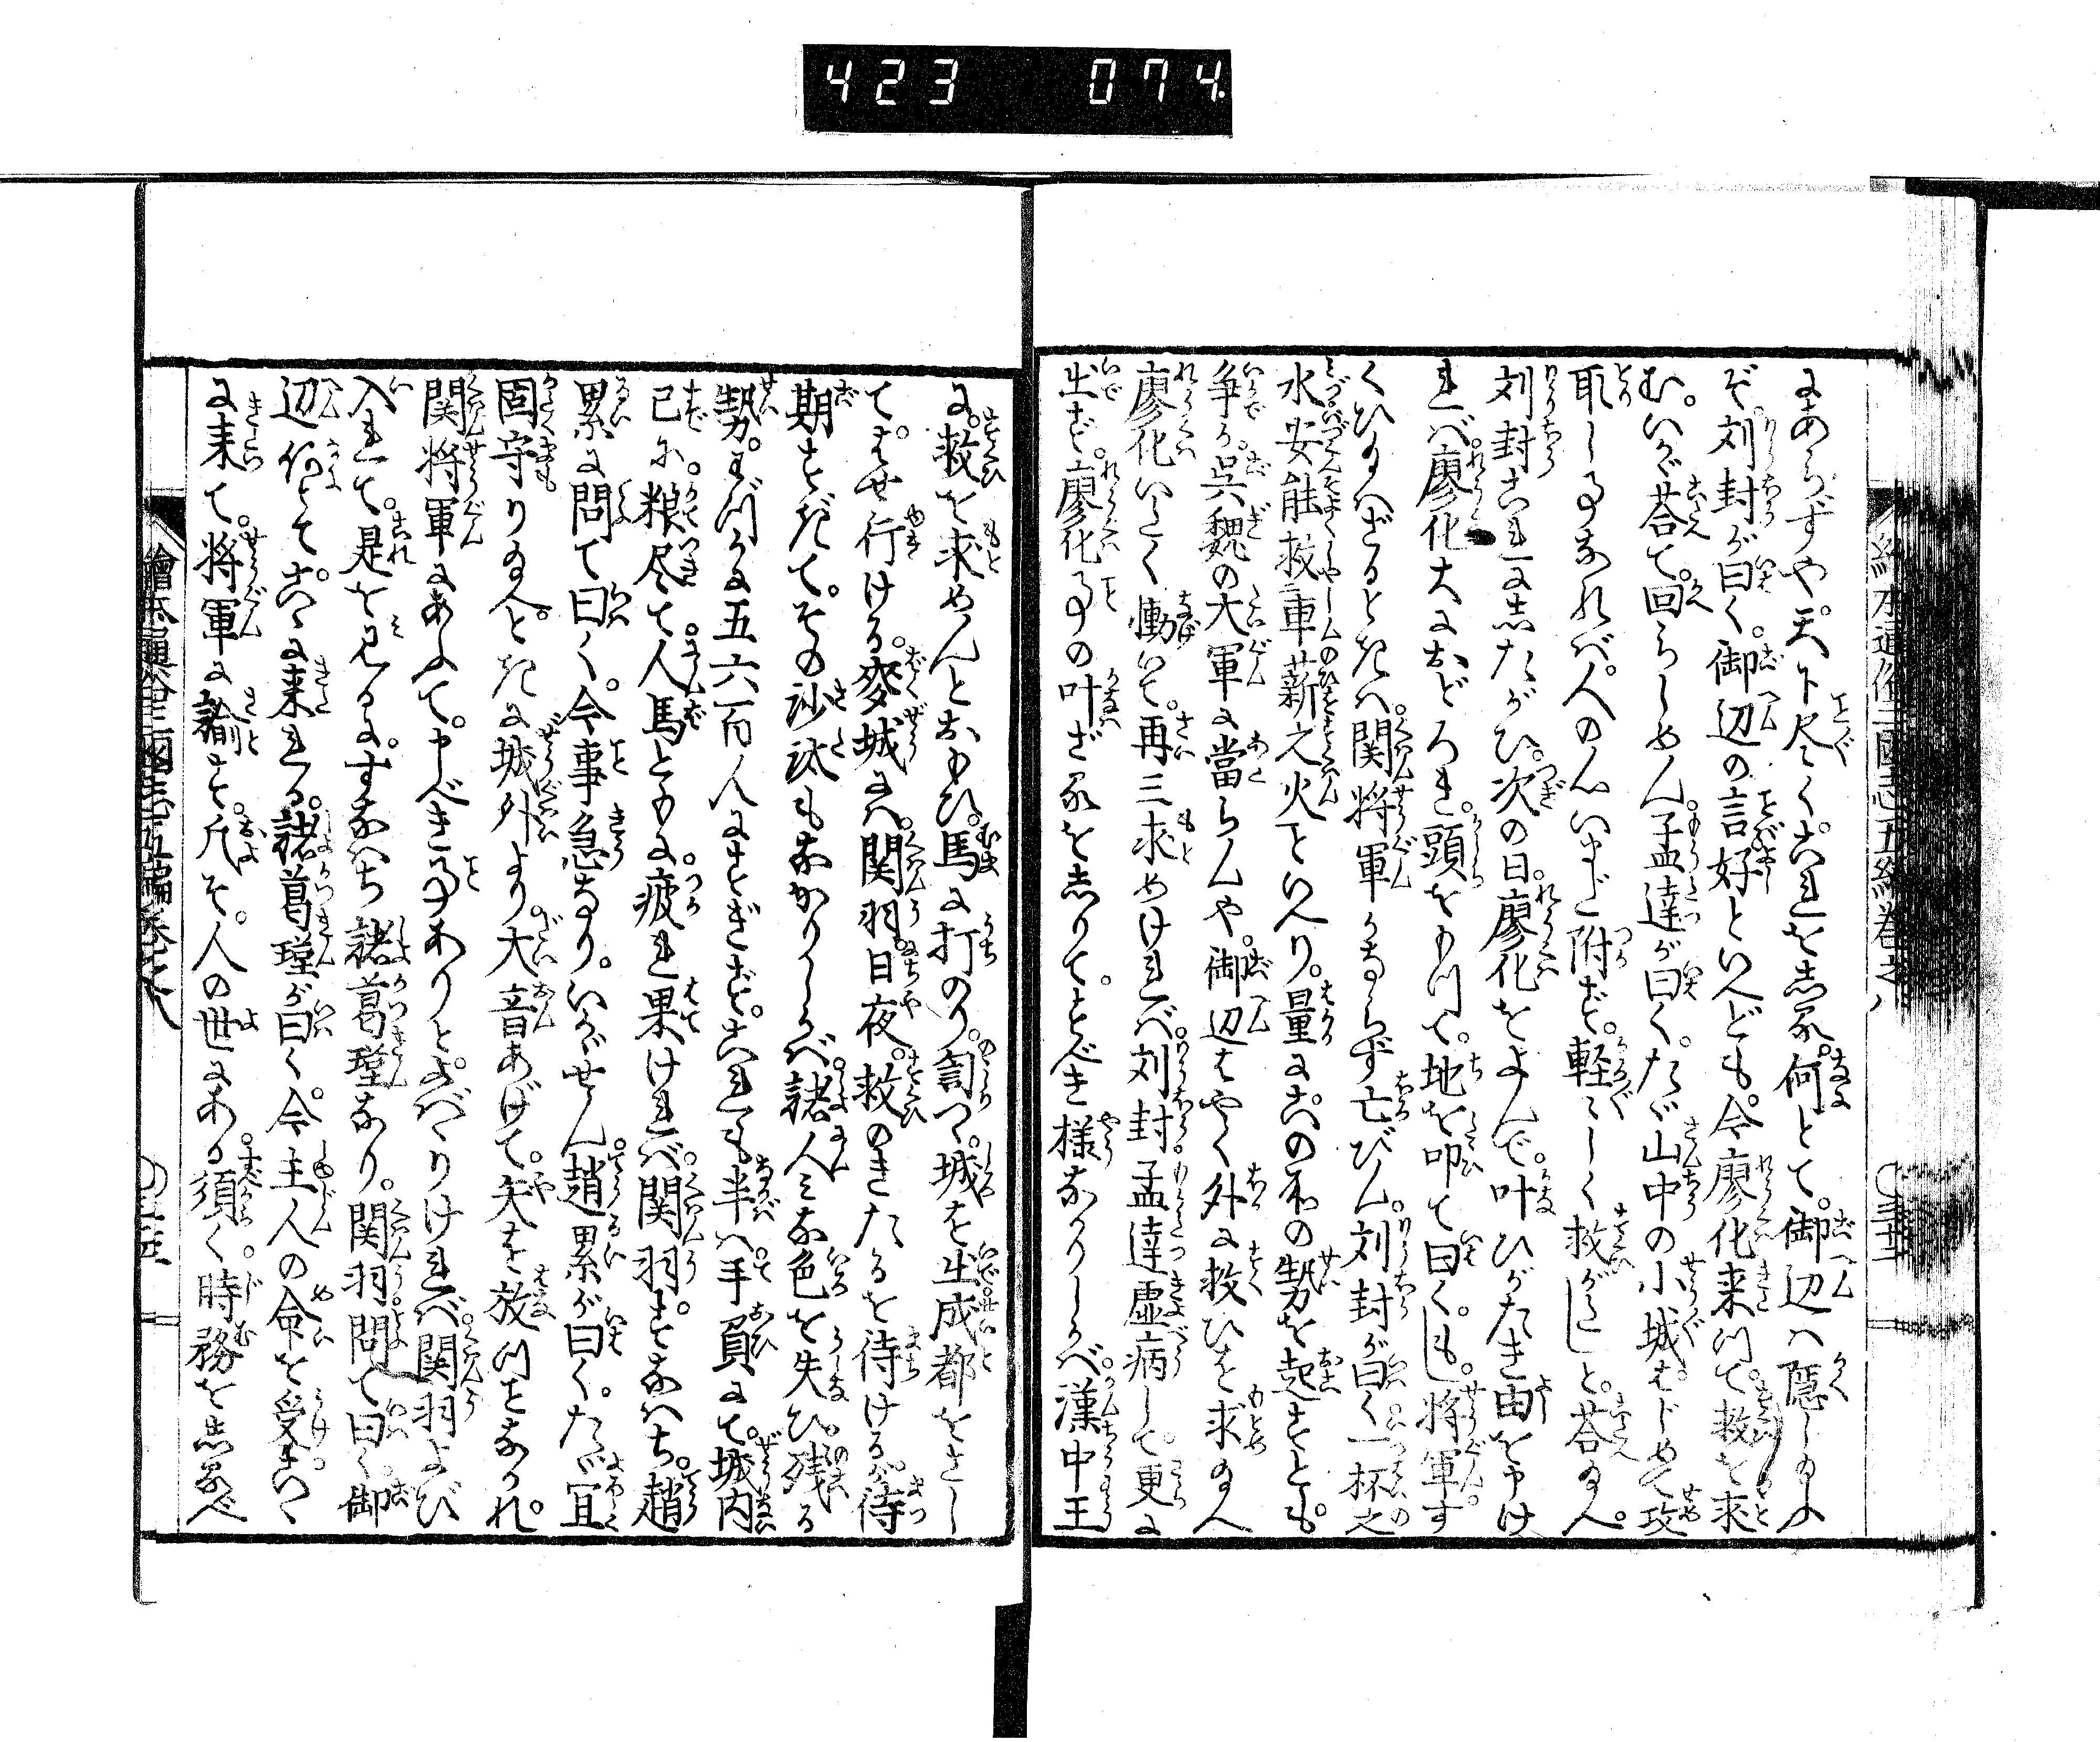 423 074
にあらずや。天下尽くこれをしる。何とて。御辺ハ隠し玉ふ
ぞ。刘封が曰く。御辺の言好といへども。今廖化来ツて。救を求
む。いかゞ荅て。回らしめん。孟達が曰く。たゞ山中の小城。はじめて攻
取し事なれば。人の心いまだ附ず。軽〻しく救がたしと。荅玉へ。
刘封これにしたがひ。次の日。廖化をよんで。叶ひがたき由を申け
れば。廖化大におどろき。頭をもツて。地を叩て曰く。もし。将軍す
くひ玉ハざるときハ。関将軍かならず亡びん。刘封が曰く。一杯之
水安能救車薪之火といへり。量にこの不の勢を起すとも。
争か。呉魏の大軍に當らんや。御辺はやく外に救ひを求玉へ
廖化いたく慟いて。再三求めけれバ。刘封孟達虚病して。更に
出ず。廖化事の叶ざるをしりて。とゞむべき様なかりしかバ。漢中王
に。救を求めんとおもひ。馬に打のり。詈つゝ。城を出。成都をさし
て。はせ行ける。麥城にハ。関羽。日夜。救のきたるを待けるが。待
期すぎて。その沙汰もなかりしかバ。諸人ミな色を失ひ。残る
勢。わづかに五六百人にすぎず。これも半ハ手負にて。城内
已に。粮尽て。人馬ともに。疲れ果けれバ。関羽。すなハち。趙
累に問て曰く。今事急なり。いかゞせん。趙累が曰く。たゞ宜
固守り玉へと。ときに城外より。大音あげて。矢を放ツことなかれ。
関将軍にあふて。申べき事ありと。よバゝりけれバ。関羽よび
入れて。是を見るに。すなハち諸葛瑾なり。関羽問て曰く。御
辺何とて。こゝに来れる。諸葛瑾が曰く。今主人の命を受。こゝ
に来て。将軍に諭す。凡そ。人の世にある。須く時務をしるべ
繪本通俗三國志五編巻之八